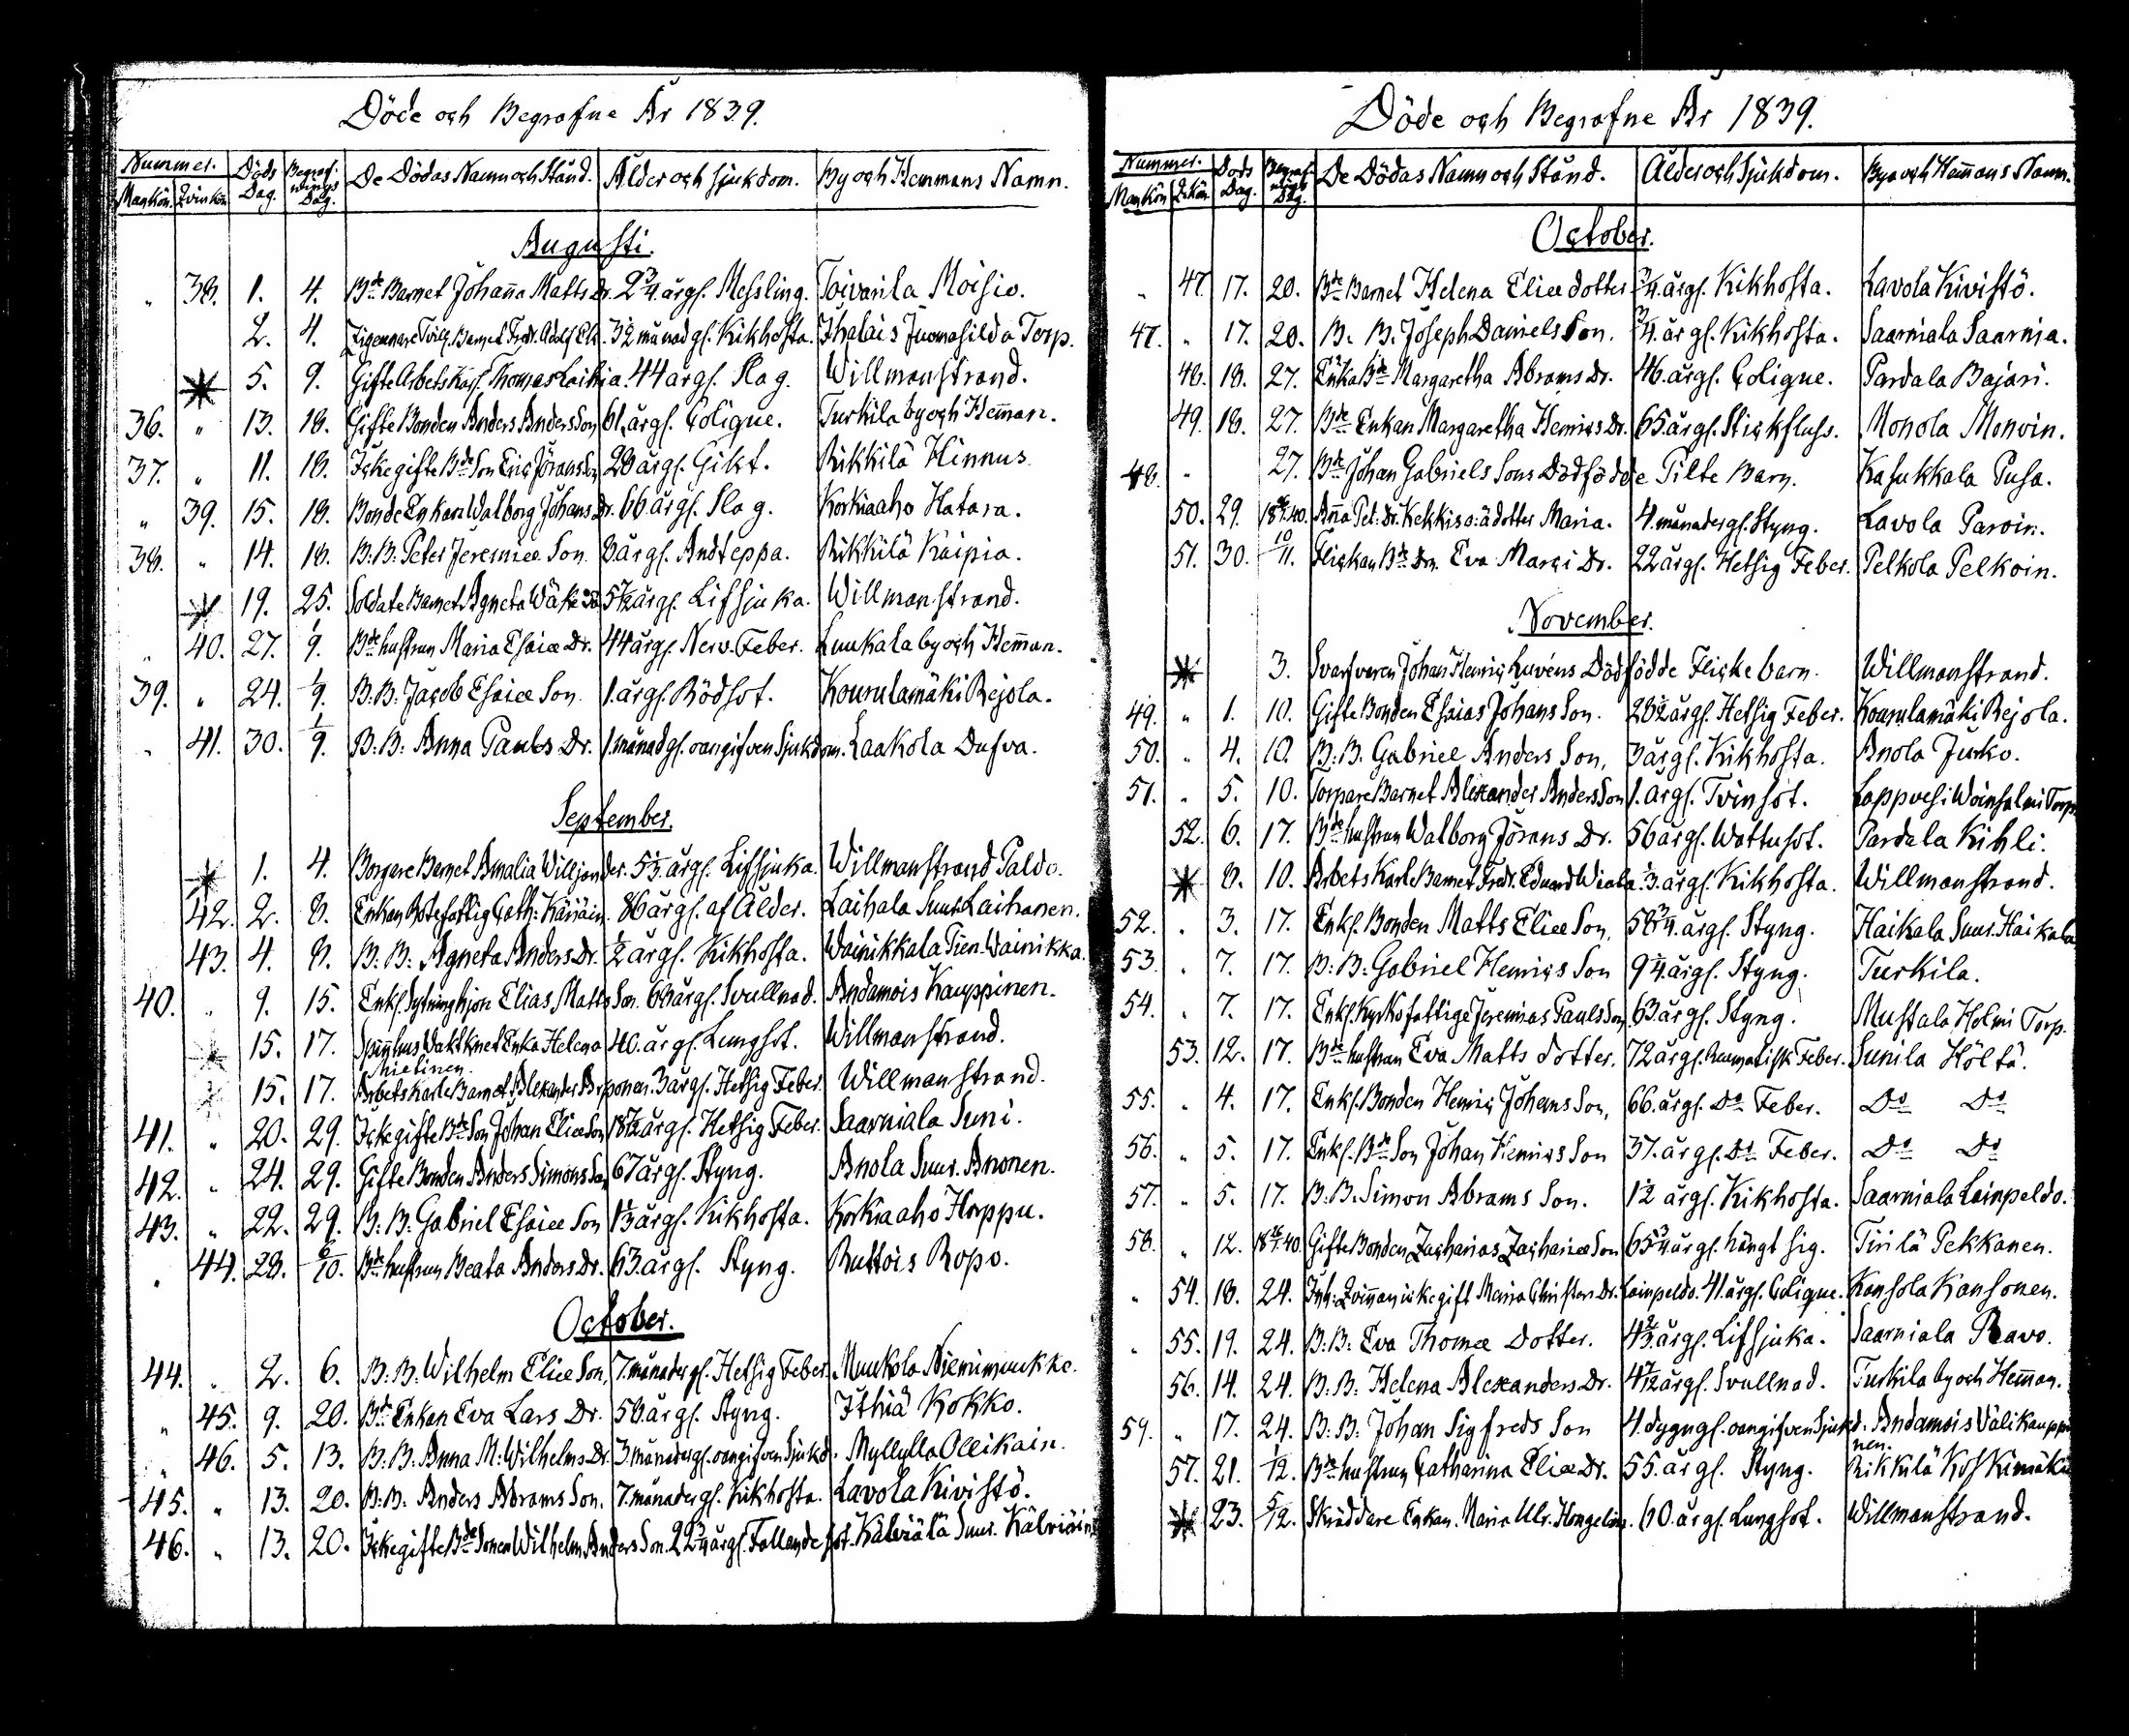 Döde och Begrafne År 1839.
Nummer. Döds Dag. Begrafnings Dag. De Dödas Namn och Stånd. Ålder och Sjukdom. By och Hemmans Namn.
Mankön. Qvinkön
Augusti.
" 38. 1. 4. Bde Barnet Johanna Matts Dr. 2 3/4 årgl. Messling. Toivarila Moisio.
2. 4. 3 1/2 månad gl. Kikhosta. Torp.
5. 9. Gifte Arbets Karl. Thomas Laikia. 44 årgl. Slag. Willmanstrand.
36. " 13. 18. Gifte Bonden Anders Anders Son 61 årgl. Colique. Turkila by och Hemman.
37. " 11. 18. Icke gifte Bde Son Eric Jörans Son 28 årgl. Gikt. Rikkilä Hinnus
" 39. 15. 18. Bonde Enkan Walborg Johans Dr. 66 årgl. Slag. Korkiaaho Hatara.
38. " 14. 18. B. B. Peter Jeremiæ Son 8 årgl. Andteppa. Rikkilä Kaipia.
19. 25. Soldate Barnet Agneta 5 1/2 årgl. Lifsjuka. Willmanstrand.
" 40. 27. 1/9. Bde hustrun Maria Esaiæ Dr. 44 årgl. Nerv. Feber. Luukala by och Hemman.
39. " 24. 1/9. B. B. Jacob Esaiæ Son 1. årgl. Rödsot. Kourulamäki Reijola.
" 41. 30. 1/9. B. B. Anna Pauls Dr. 1. månad gl. oangifven Sjukdom. Laakola Dusva.
September.
1. 4. Borgare Barnet Amalia Willjander. 5 1/2 årgl. Lifsjuka. Willmanstrand Paldo.
42. 2. 8. Enkan Rotefattig Cath: 86 årgl. af Ålder. Laihala Suur Laihanen.
43. 4. 8. B. B. Agneta Anders Dr. 1/2 årgl. Kikhosta. Wainikkala Pien-Wainikka.
40. " 9. 15. Enkl. Sytninghjon Elias Matts Son. 68 årgl. Svullnad. Andamois Kauppinen.
15. 17. Spinnhus Waktknet Enka Helena Mietinen. 40. årgl. Lungsot. Willmanstrand.
15. 17. Arbets Karle Barnet Alexander 3 årgl. Hetsig Feber. Willmanstrand.
41. " 20. 29. Icke gifte Bde Son Johan Eliæ Son 18 1/2 årgl. Hetsig Feber. Saarniala Suni.
42. " 24. 29. Gifte Bonden Anders Simons Son 67 årgl. Styng. Anola Suur. Anonen.
43. " 22. 29. B. B. Gabriel Esaiæ Son 1 1/3 årgl. Kikhosta. Korkiaaho Hoppu.
" 44. 28. 6/10. Bde hustrun Beata Anders Dr. 63 årgl. Styng. Ruttois Ropo.
October.
44. " 2. 6. B. B. Wilhelm Eliæ Son, 7. månader gl. Hetsig Feber. Muukola Niemimuukko.
" 45. 9. 20. Bde Enkan Eva Lars Dr. 58. årgl. Styng. Ithiä Kokko.
" 46. 5. 13. B. B. Anna M: Wilhelms Dr. 3. månader gl. oangifven Sjukd. Myllylla Ollikain.
45. " 13. 20. B. B. Anders Abrams Son. 7. månader gl. Kikhosta. Lavola Kivistö.
46. " 13. 20. Icke gifte Bde Sonen Wilhelm Anders Son. 22 3/4 årgl. Fallande sot. Kälviälä Suur. Kälviäin
Döde och Begrafne År 1839.
Nummer. Döds Dag. Begrafnings Dag. De Dödas Namn och Stånd. Ålder och Sjukdom. By och Hemmans Namn.
Mankön Q.kön
October.
" 47. 17. 20. Bde Barnet Helena Eliæ dotter 3/4. årgl. Kikhosta. Lavola Kivistö.
47. " 17. 20. B. B. Joseph Daniels Son. 3/4. årgl. Kikhosta. Saarniala Saarnia.
48. 18. 27. Enka Bde Margaretha Abrams Dr. 46. årgl. Colique. Pardala Bajari.
49. 18. 27. Bde Enkan Margaretha Henrics Dr. 65. årgl. Stickfluss. Monola Monoin.
48. " 27. Bde Johan Gabriels Sons Dödfödde Pilte Barn. Kasukkala Pusa.
50. 29. Anna Pet: Dr. Kekkis o:ä dotter Maria. 4. månader gl. Styng. Lavola Paroin.
51. 30. 10/11. Flickan Bde Dr. Eva Marci Dr. 22 årgl. Hetsig Feber. Pelkola Pelkoin.
November.
3. Svarfvaren Johan Henric Luvéns Dödfödde Flicke barn. Willmanstrand.
49. " 1. 10. Gifte Bonden Esaias Johans Son. 28 1/2 årgl. Hetsig Feber. Kourulamäki Reijola.
50. " 4. 10. B. B. Gabriel Anders Son, 3 årgl. Kikhosta. Anola Jurko.
51. " 5. 10. Torpare Barnet Alexander Anders Son 1. årgl. Tvinsot. Lappvesi Woinsalmi Torp.
52. 6. 17. Bde hustrun Walborg Jörans Dr. 56 årgl. Wattusot. Pardala Kihli.
8. 10. Arbets Karle Barnet Fredr. Eduard Wiala. 1/3. årgl. Kikhosta. Willmanstrand.
52. " 3. 17. Enkl. Bonden Matts Eliæ Son, 58 3/4. årgl. Styng. Haikala Suur. Haikala
53. " 7. 17. B. B. Gabriel Henrics Son 9 1/4. årgl. Styng. Turkila.
54. " 7. 17. Enkl. Kyrkofattige Jeremias Pauls Son, 63 årgl. Styng. Mustala Holmi Torp.
53. 12. 17. Bde hustrun Eva Matts dotter. 72 årgl. Reumatisk Feber. Sunila Höltä.
55. " 4. 17. Enkl. Bonden Henric Johans Son, 66. årgl. Do Feber. Do Do
56. " 5. 17. Enkl. Bde Son Johan Henrics Son 37. årgl. Do Feber. Do Do
57. " 5. 17. B. B. Simon Abrams Son. 1 1/2 årgl. Kikhosta. Saarniala Leinpeldo.
58. " 12. Gifte Bonden Zacharias Zachariæ Son 65 3/4 årgl. hängt sig. Tirilä Pekkanen.
" 54. 18. 24. Inh: Qvinnan icke gift Maria Christers Dr. Leinpeldo. 41. årgl. Colique. Kansola Kansonen.
" 55. 19. 24. B. B. Eva Thomæ Dotter. 4 2/3 årgl. Lifsjuka. Saarniala Ravo.
56. 14. 24. B. B. Helena Alexanders Dr. 4 1/2 årgl. Svullnad. Turkila by och Hemman.
59. " 17. 24. B. B. Johan Sigfreds Son 4. dygn gl. oangifven Sjukd. Andamois Välikauppinen.
57. 21. 1/12. Bde hustrun Catharina Eliæ Dr. 55. årgl. Styng. Rikkilä Koskimäki
23. 5/12. Skräddare Enkan. Maria Ulr. Hongelin. 60. årgl. Lungsot. Willmanstrand.